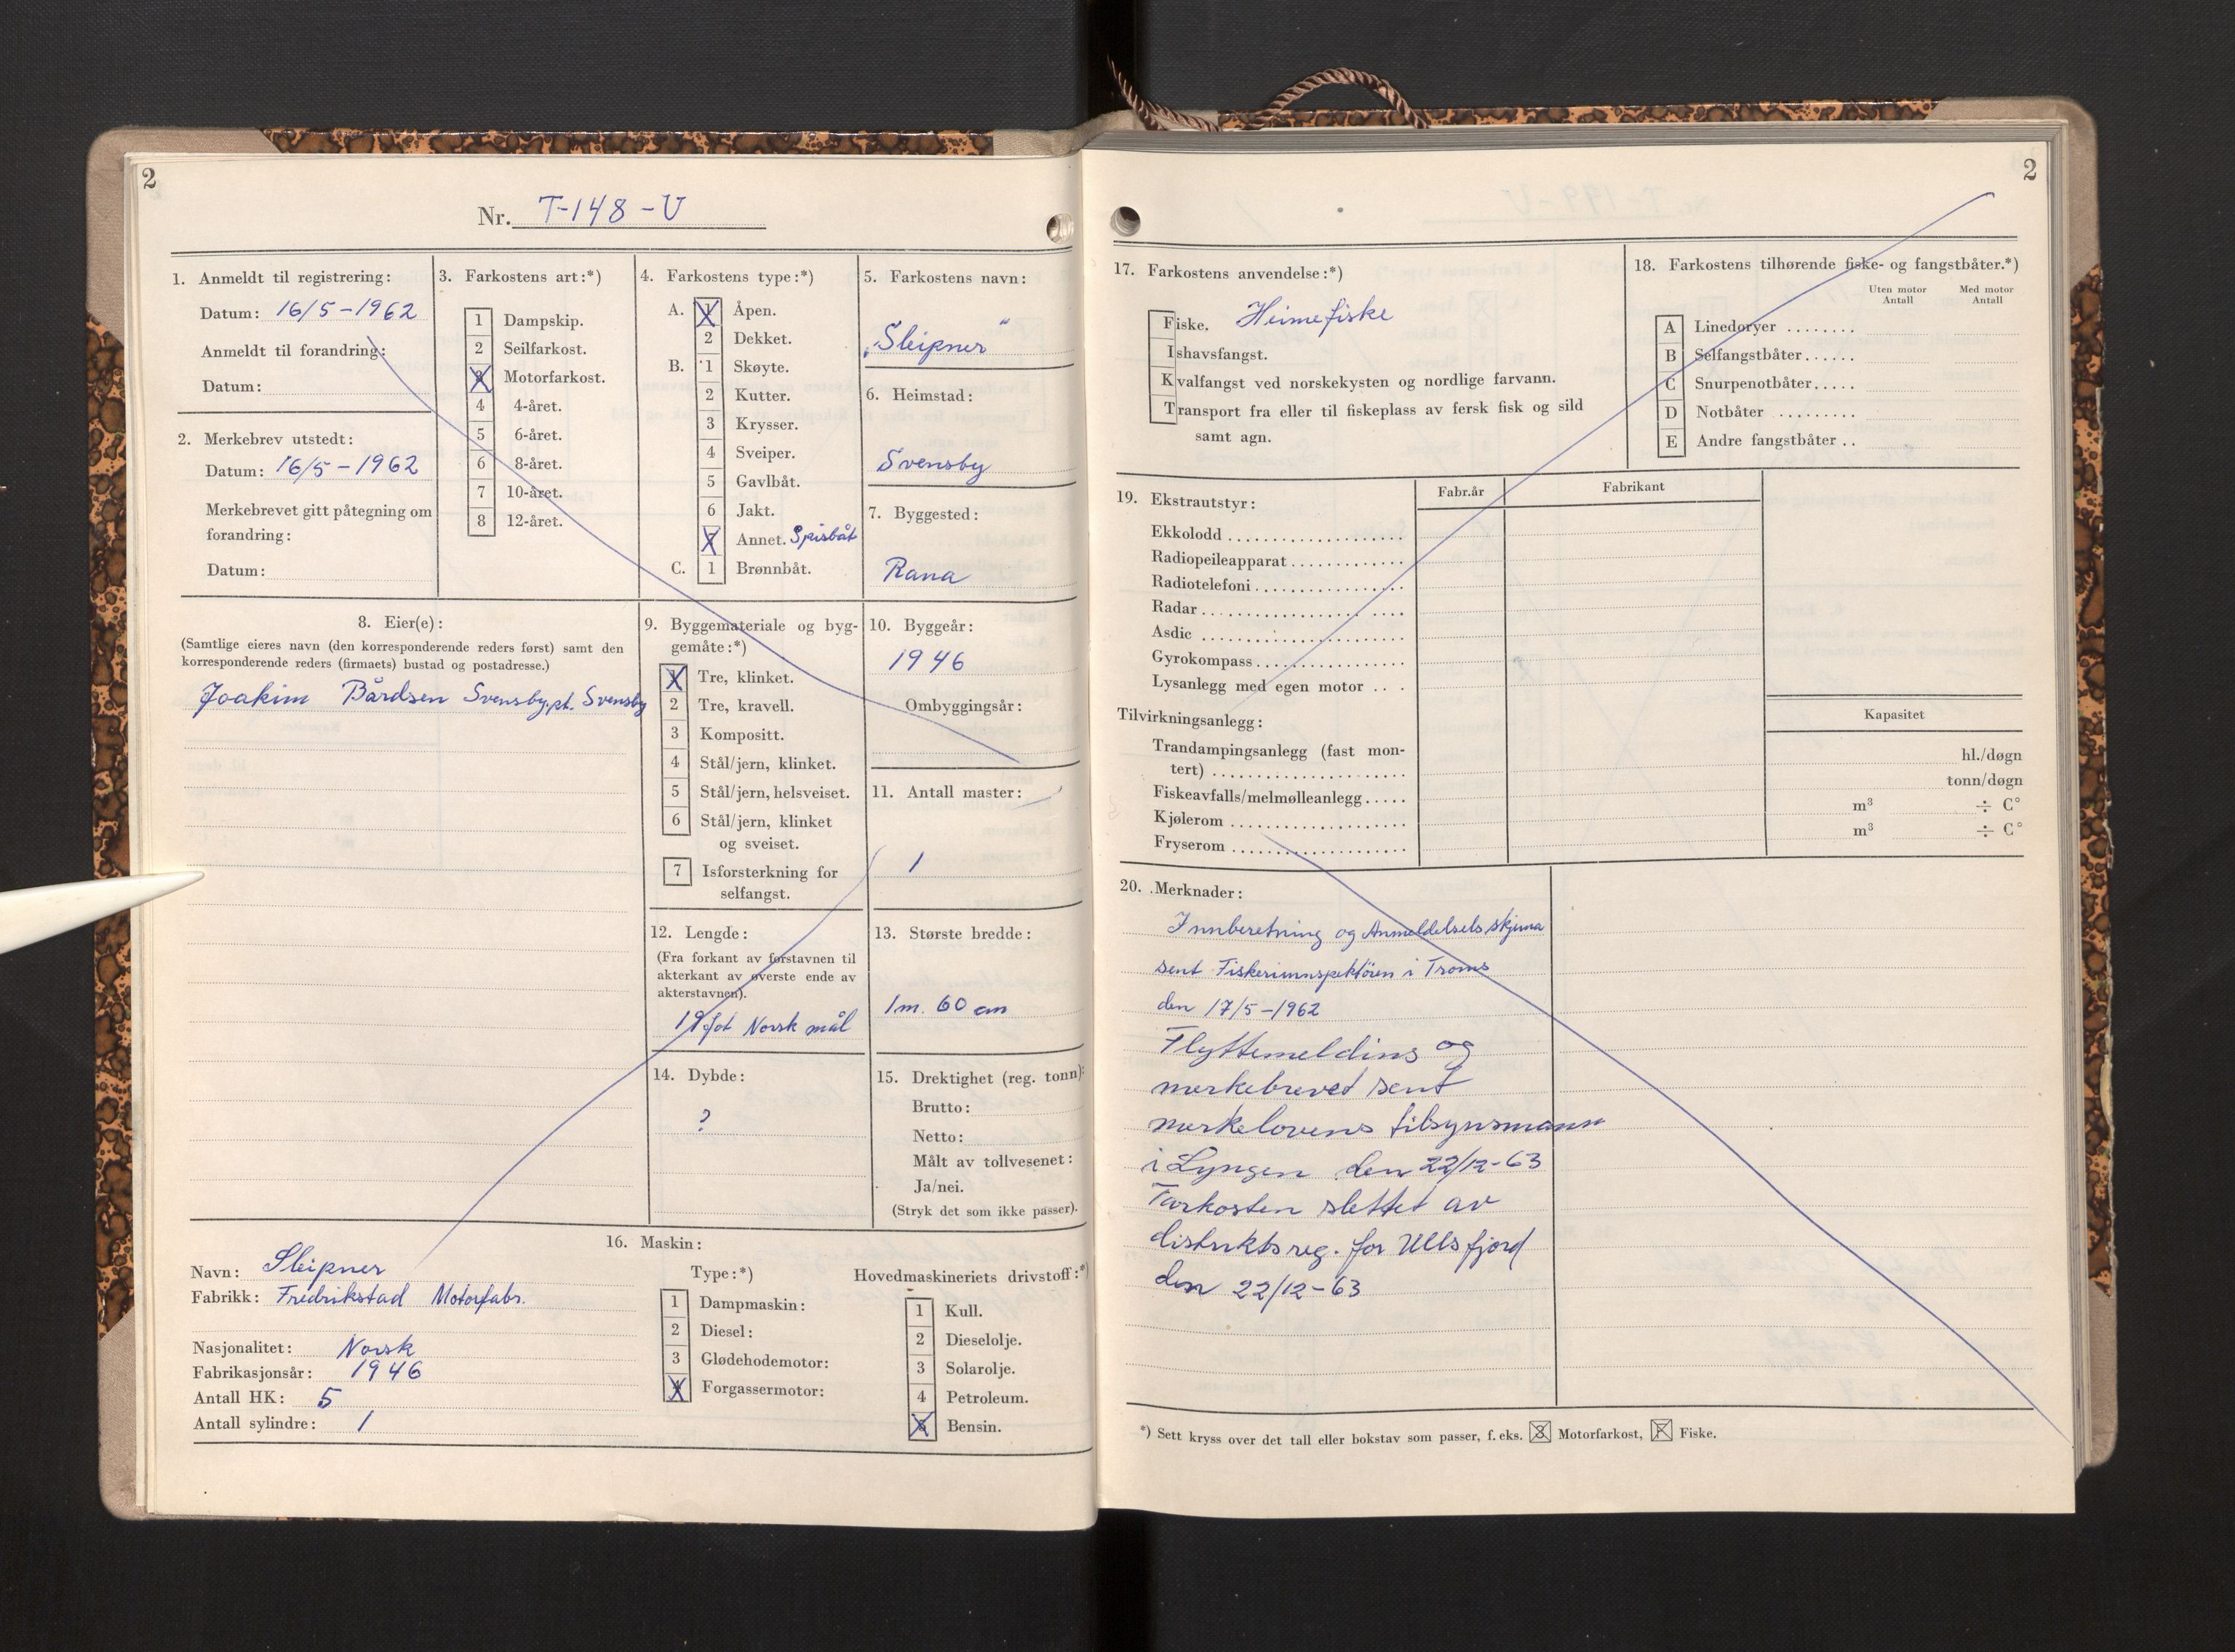 2
Nr. T-148-U
1. Anmeldt til registrering:
Datum: 16/5-1962
Anmeldt til forandring:
Datum:
2. Merkebrev utstedt:
Datum: 16/5-1962
Merkebrevet gitt påtegning om
forandring:
Datum:
3. Farkostens art:*)
1 Dampskip.
2 Seilfarkost.
3 Motorfarkost.
4 4-året.
5 6-året.
6 8-året.
7 10-året.
8 12-året.
4. Farkostens type:*)
A. 1 Åpen.
2 Dekket.
B. 1 Skøyte.
2 Kutter.
3 Krysser.
4 Sveiper.
5 Gavlbåt.
6 Jakt.
7 Annet. Spisbåt
C. 1 Brønnbåt.
5. Farkostens navn:
„Sleipner“
6. Heimstad:
Svensby
7. Byggested:
Rana
8. Eier(e):
(Samtlige eieres navn (den korresponderende reders først) samt den
korresponderende reders (firmaets) bustad og postadresse.)
Joakim Bårdsen Svensby.pt. Svensby
9. Byggemateriale og byg-
gemåte:*)
1 Tre, klinket.
2 Tre, kravell.
3 Kompositt.
4 Stål/jern, klinket.
5 Stål/jern, helsveiset.
6 Stål/jern, klinket
og sveiset.
7 Isforsterkning for
selfangst.
10. Byggeår:
1946
Ombyggingsår:
11. Antall master:
1
12. Lengde:
(Fra forkant av forstavnen til
akterkant av øverste ende av
akterstavnen).
19 fot Norsk mål
13. Største bredde:
1 m. 60 cm
14. Dybde:
?
15. Drektighet (reg. tonn):
Brutto:
Netto:
Målt av tollvesenet:
Ja/nei.
(Stryk det som ikke passer).
16. Maskin:
Navn: Sleipner
Fabrikk: Fredrikstad Motorfabr.
Nasjonalitet: Norsk
Fabrikasjonsår: 1946
Antall HK: 5
Antall sylindre: 1
Type:*)
1 Dampmaskin:
2 Diesel:
3 Glødehodemotor:
4 Forgassermotor:
Hovedmaskineriets drivstoff:*)
1 Kull.
2 Dieselolje.
3 Solarolje.
4 Petroleum.
5 Bensin.
2
17. Farkostens anvendelse:*)
Fiske. Heimefiske
Ishavsfangst.
Kvalfangst ved norskekysten og nordlige farvann.
Transport fra eller til fiskeplass av fersk fisk og sild
samt agn.
18. Farkostens tilhørende fiske- og fangstbåter.*)
Uten motor Med motor
Antall Antall
A Linedoryer ........
B Selfangstbåter......
C Snurpenotbåter.....
D Notbåter .........
E Andre fangstbåter ..
19. Ekstrautstyr:
Fabr.år Fabrikant
Ekkolodd
Radiopeileapparat
Radiotelefoni
Radar
Asdic
Gyrokompass
Lysanlegg med egen motor ....
Tilvirkningsanlegg:
Kapasitet
Trandampingsanlegg (fast mon-
tert) hl./døgn
Fiskeavfalls/melmølleanlegg..... tonn/døgn
Kjølerom m³ ÷ C°
Fryserom m³ ÷ C°
20. Merknader:
Innberetning og Anmeldelsels skjema
sent Fiskeriinnspektören i Troms
den 17/5-1962
Flyttemelding og
merkebrevet sent
merkelovens tilsynsmann
i Lyngen den 22/12-63
Farkosten slettet av
distriktsreg. for Ullsfjord
den 22/12-63
*) Sett kryss over det tall eller bokstav som passer, f. eks. 3 Motorfarkost, F Fiske.